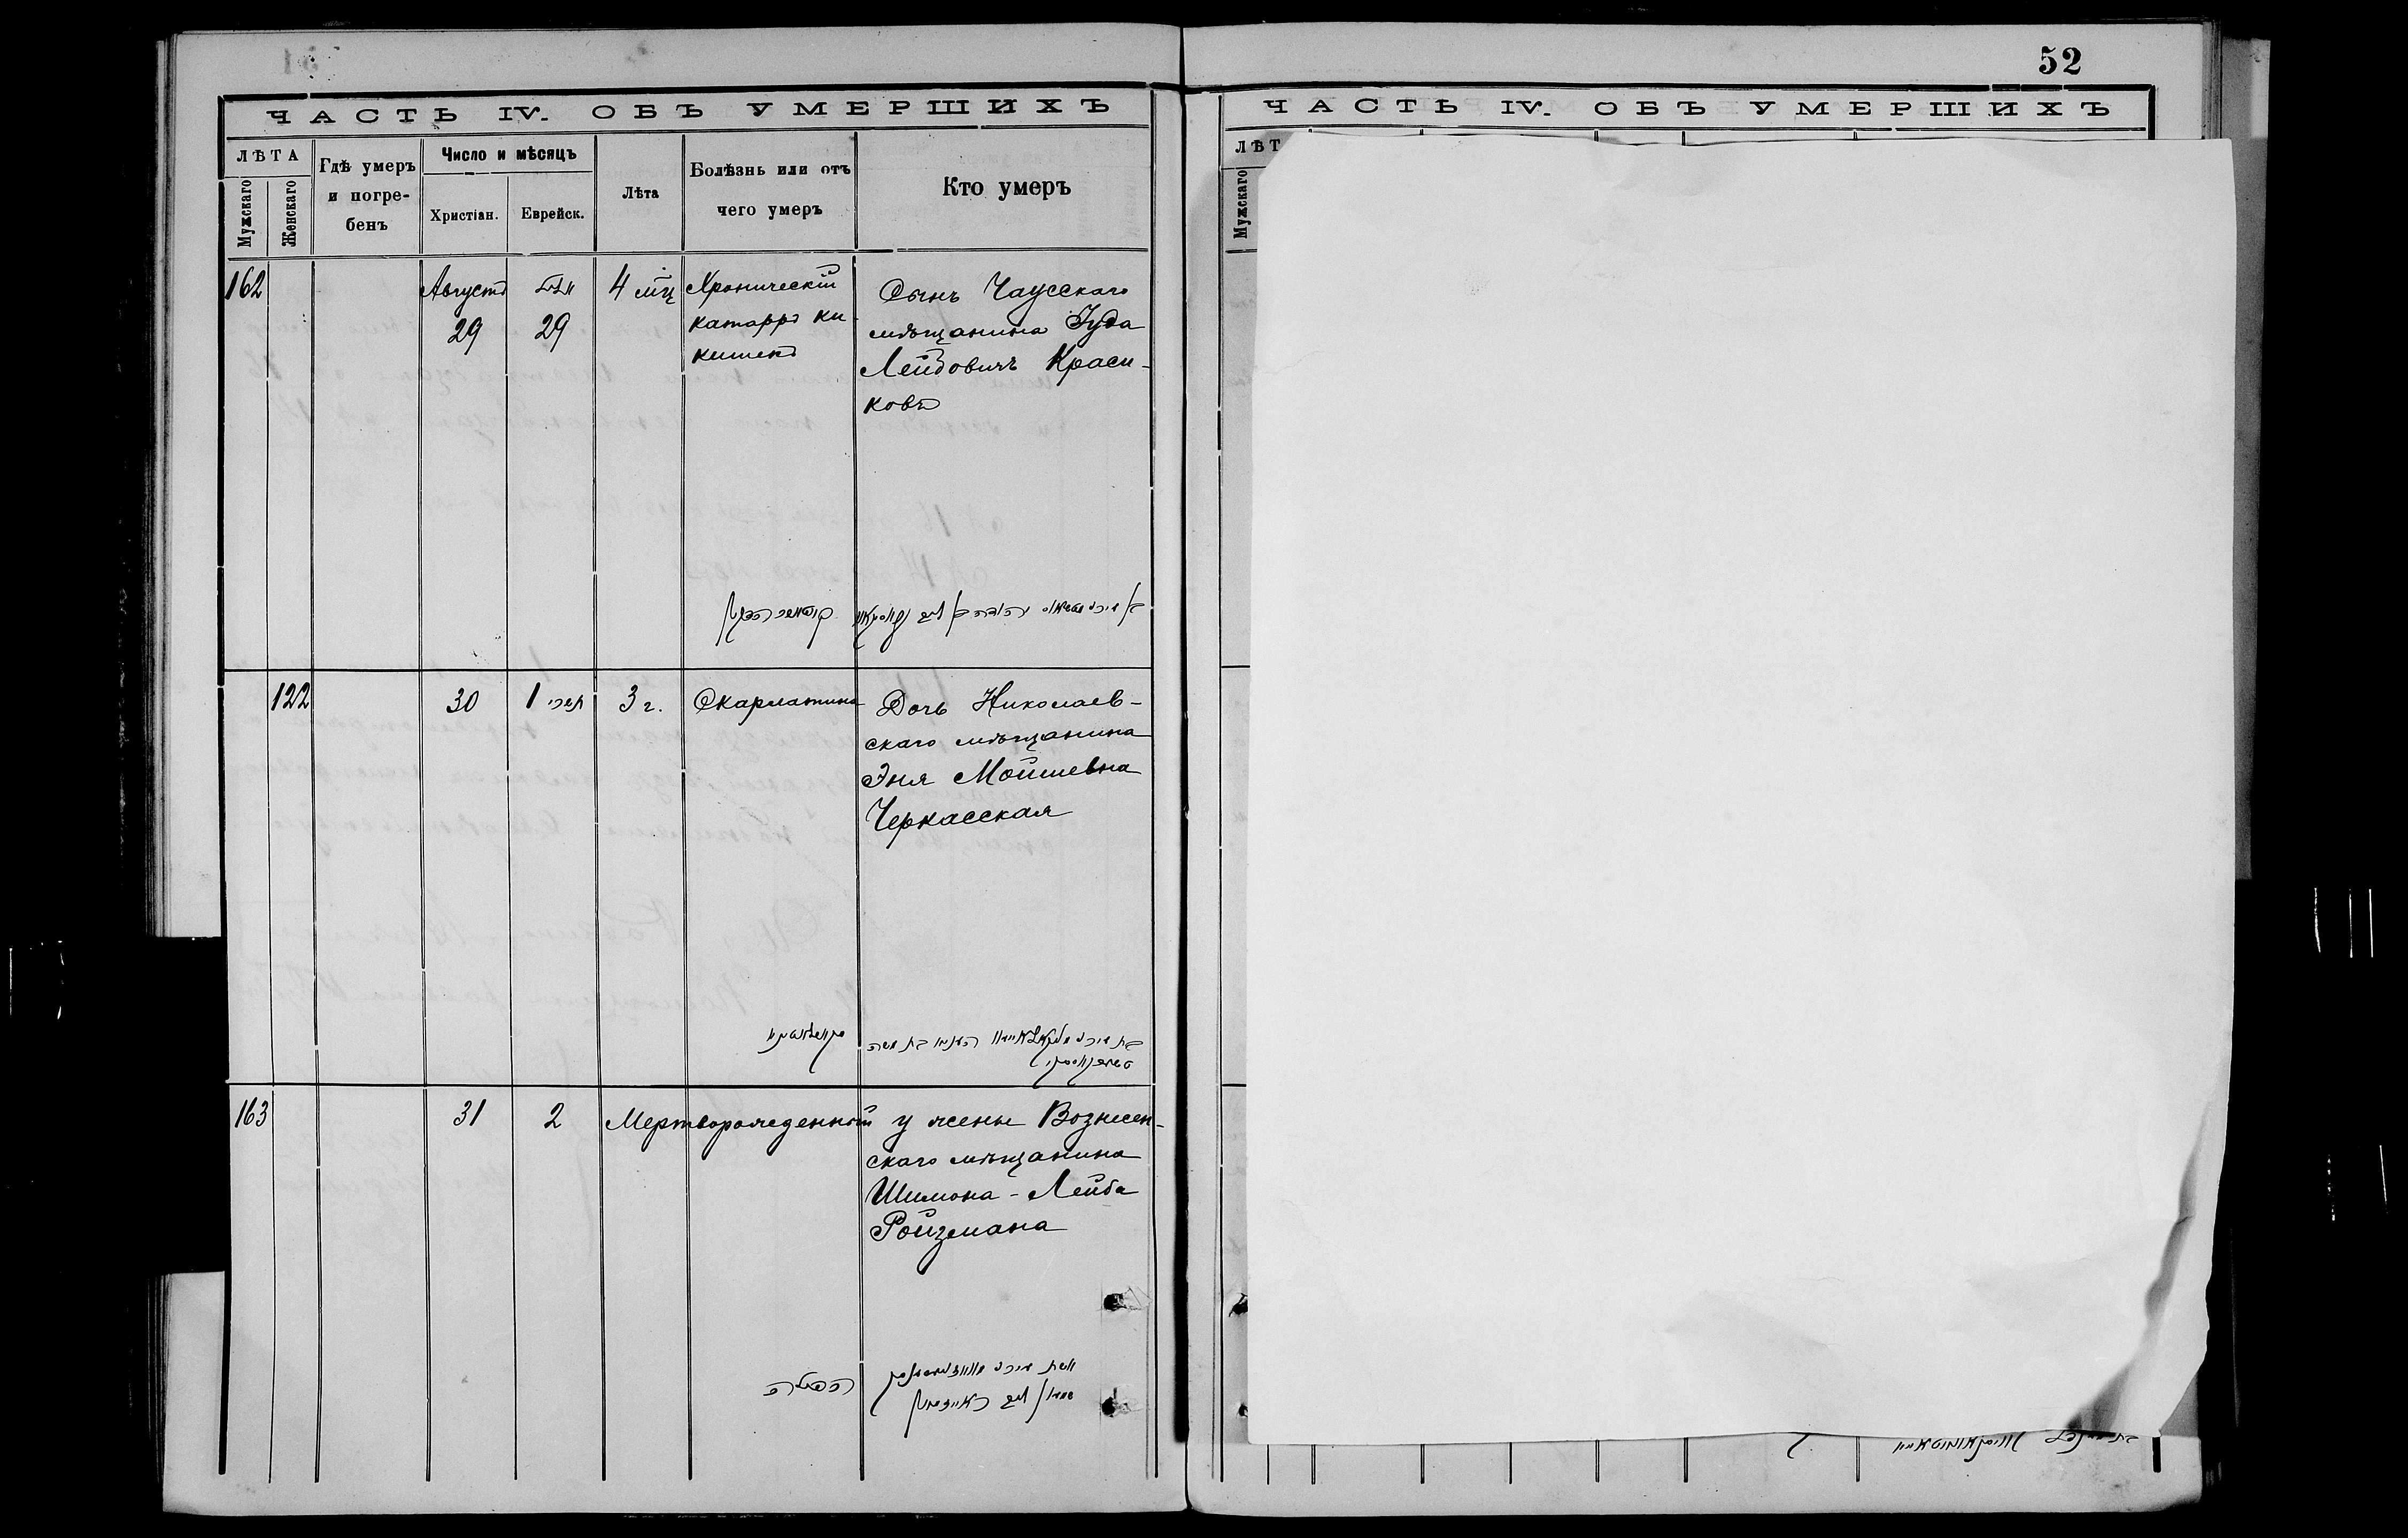 52
ЧАСТЬ IV. ОБЪ УМЕРШИХЪ
ЛѢТА
Мужскаго
Женскаго
Гдѣ умеръ
и погре-
бенъ
Число и мѣсяцъ
Христіан.
Еврейск.
Лѣта
Болѣзнь или отъ
чего умеръ
Кто умеръ
162
Августъ
29
29
4 мц
Хроническій
катарръ ки-
кишекъ
Сынъ Чаусскаго
мѣщанина Іуда
Лейбовичъ Краси-
ковъ
122
30
1 תשרי
3 г.
Скарлатина
Дочь Николаев-
скаго мѣщанина
Эня Мойшевна
Черкасская
163
31
2
Мертворожденный
у жены Вознесен-
скаго мѣщанина
Шимона-Лейба
Ройзмана
הפילה
שמעון ליב ראיזמאן
ЧАСТЬ IV. ОБЪ УМЕРШИХЪ
ЛѢТ
Мужскаго